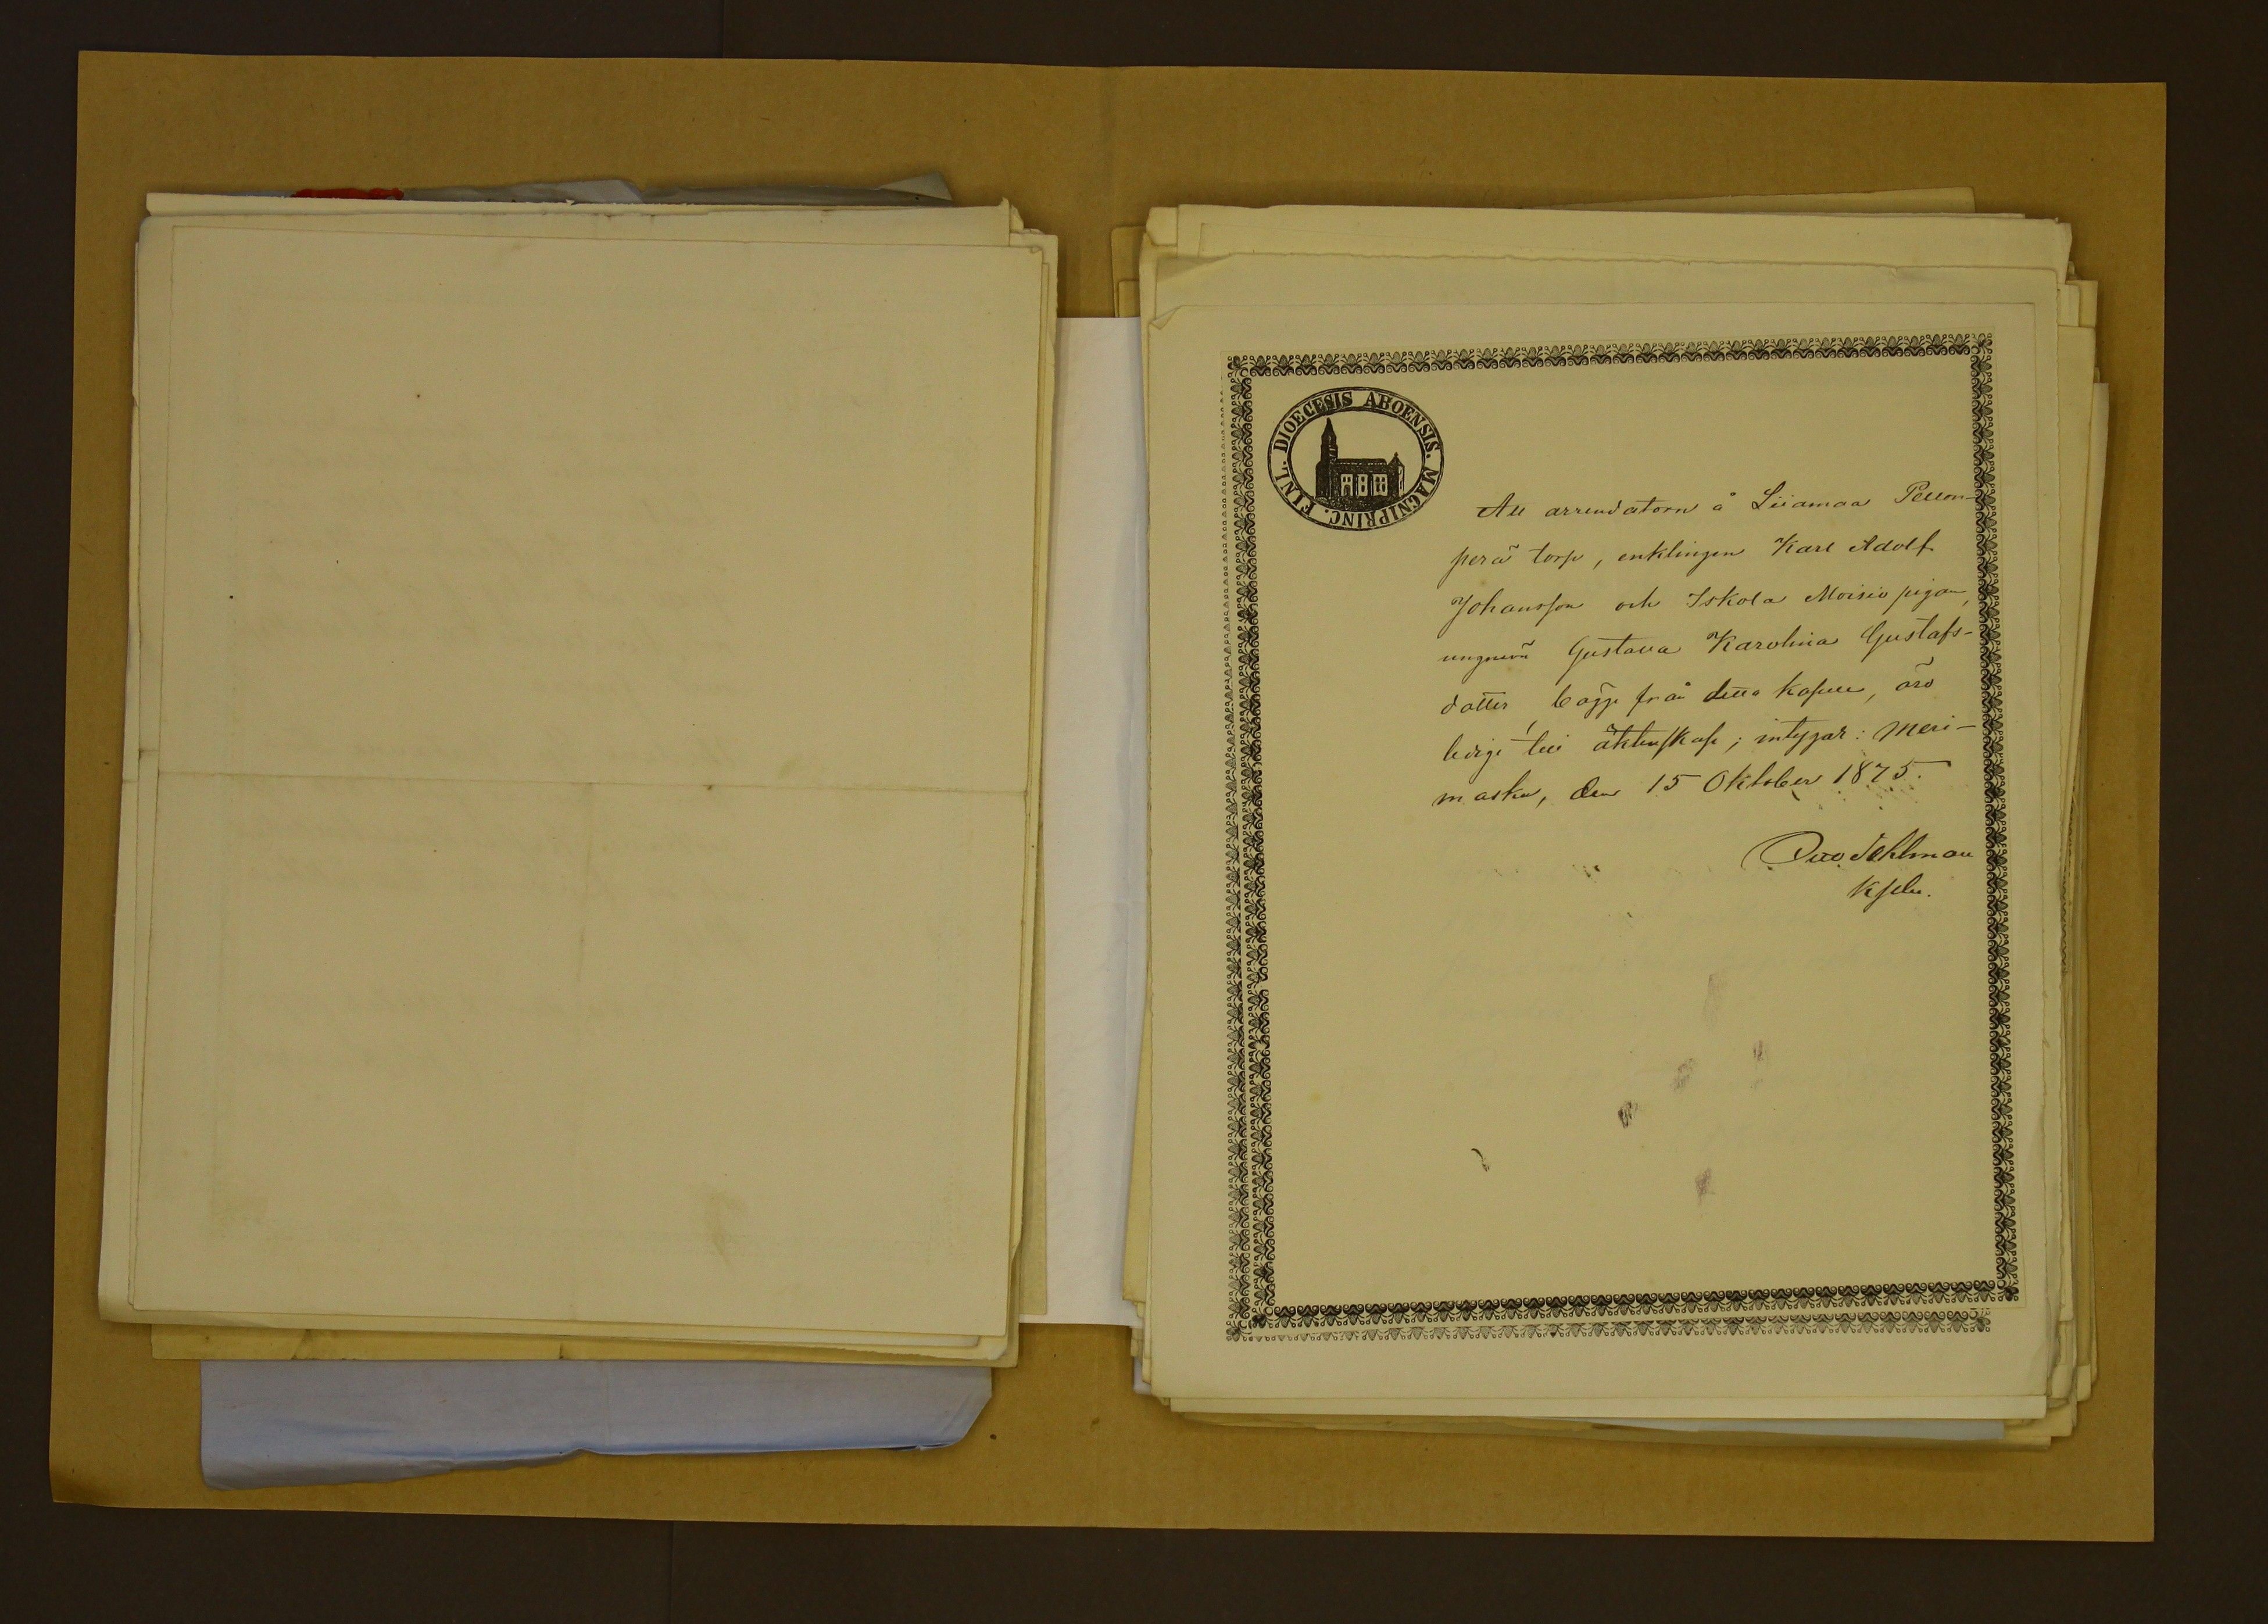 DIOECESIS ABOENSIS. MAGNIPRINC. FINL.
Att arrendatorn å Liiamaa Pellon-
perä torp, enklingen Karl Adolf
Johansson och Iskola Moisio pigan,
ungmön Gustava Karolina Gustafs-
dotter, bägge från detta kapell, äro
lediga till äktenskap; intygar: Meri-
masku, den 15 Oktober 1875.
Otto Sehlman